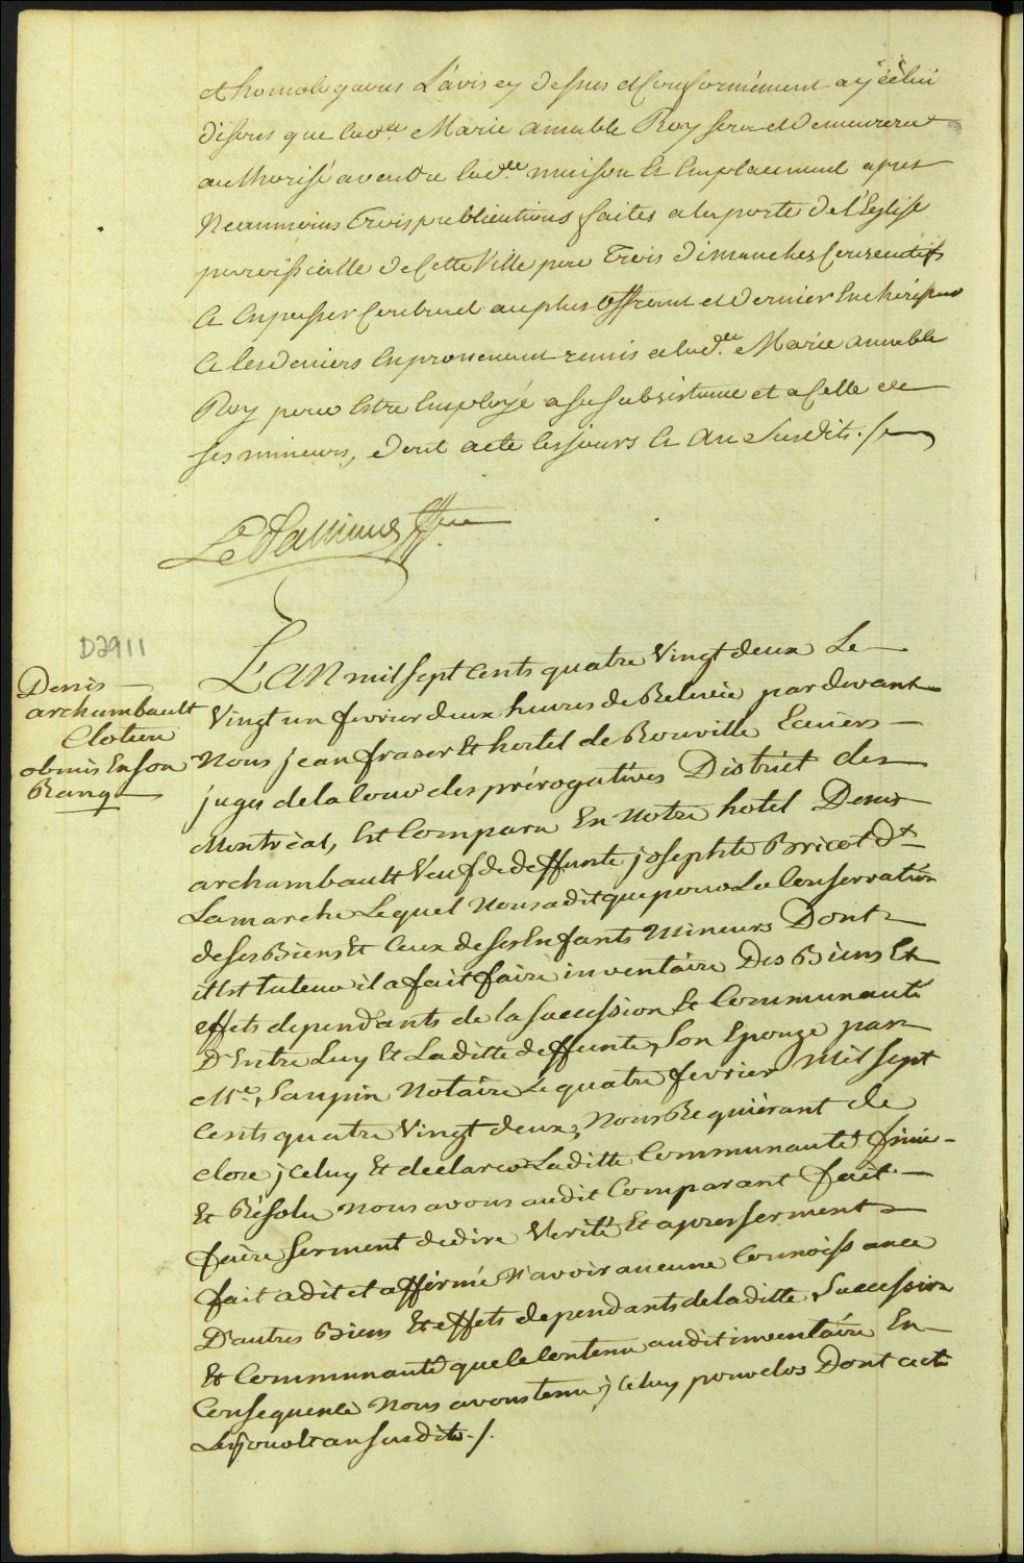 et homologuons L'avis cy Dessus et Conformément a ycelui
Disons que lad.te Marie amable Roy sera et Demeurera
authorisé a vendre lad.te maison et Emplacement apres
Neanmoins Trois publications faites a la porte de l'Eglise
paroissialle de Cette Ville pour Trois dimanches Consecutifs
et En passer Contract au plus offrant et dernier Encherisseur
et les deniers En provenant remis a lad.te Marie amable
Roy pour Estre Employé a sa subsistance et a Celle de
ses mineurs, dont acte les jours et An Susdits ./.
Le Pallieur Gffier
D2911
Denis
archambault
Cloture
obmis En son
Rang
L'AN mil sept cents quatre Vingt deux Le
Vingt un fevrier deux heures de Relevée par devant
Nous jean fraser Et hertel de Rouville Ecuiers
juges de la Cour des prérogatives District des
Montréal, Est Comparu En Notre hotel Denis
archambault Veuf de deffunte josephte Bricot Dt
Lamarche Lequel Nous a dit que pour La Conservation
de ses Biens Et Ceux de ses Enfants Mineurs Dont
il Est tuteur il a fait faire inventaire Des Biens Et
effets dependants de la Succession Et Communauté
D'Entre Luy Et Laditte deffunte, Son Epouze par
Me. Saupin Notaire Le quatre fevrier Mil Sept
Cents quatre Vingt deux, Nous Requiérant de
clore jceluy Et declarer Laditte Communauté finie
Et Résolu Nous avons audit Comparant fait
faire Serment de dire Verité Et apres serment
fait a dit et affirmé N'avoir aucune Connoissance
D'autres Biens Et effets dependants de laditte Succession
Et Communauté que le Contenu audit inventaire En
Consequence Nous avons tenu jceluy pour clos Dont acte
Les jour et an Susdits ./.